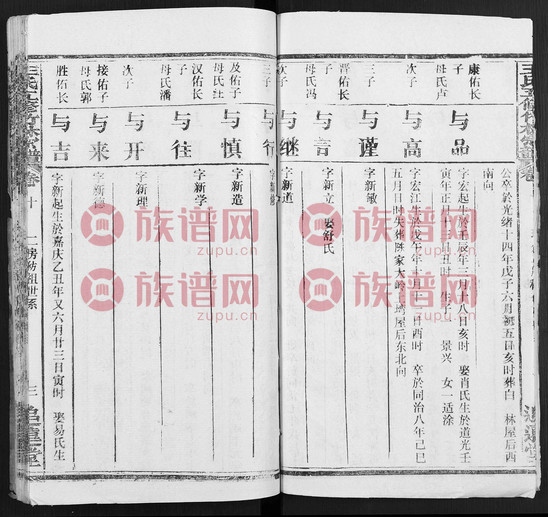 公卒於光绪十四年戊子六月初五日亥时葬白 林屋后西
南向
康佑长
子
母氏卢
与品
字宏起生於壬辰年三月十八日亥时 娶肖氏生於道光壬
寅年正月十三日丑时 生子一 景兴 女一适涂
次子
与高
字宏江生於戊午年十一月二日酉时 卒於同治八年己巳
五月日时失葬陈家大岭上塆屋后东北向
三子
与谨
字新敏
晋佑长
子
母氏冯
与言
字新立 娶舒氏
次子
与继
字新道
三子
与行
及佑子
母氏杜
与慎
字新造
汉佑长
子
母氏潘
与往
字新学
次子
与开
字新理
接佑子
母氏郭
与来
胜佑长
与吉
字新起生於嘉庆乙丑年又六月廿三日寅时 娶易氏生
卷十
二房仂祖世系
三
追远堂
族谱网
zupu.cn
族谱网
zupu.cn
族谱网
zupu.cn
族谱网
zupu.cn